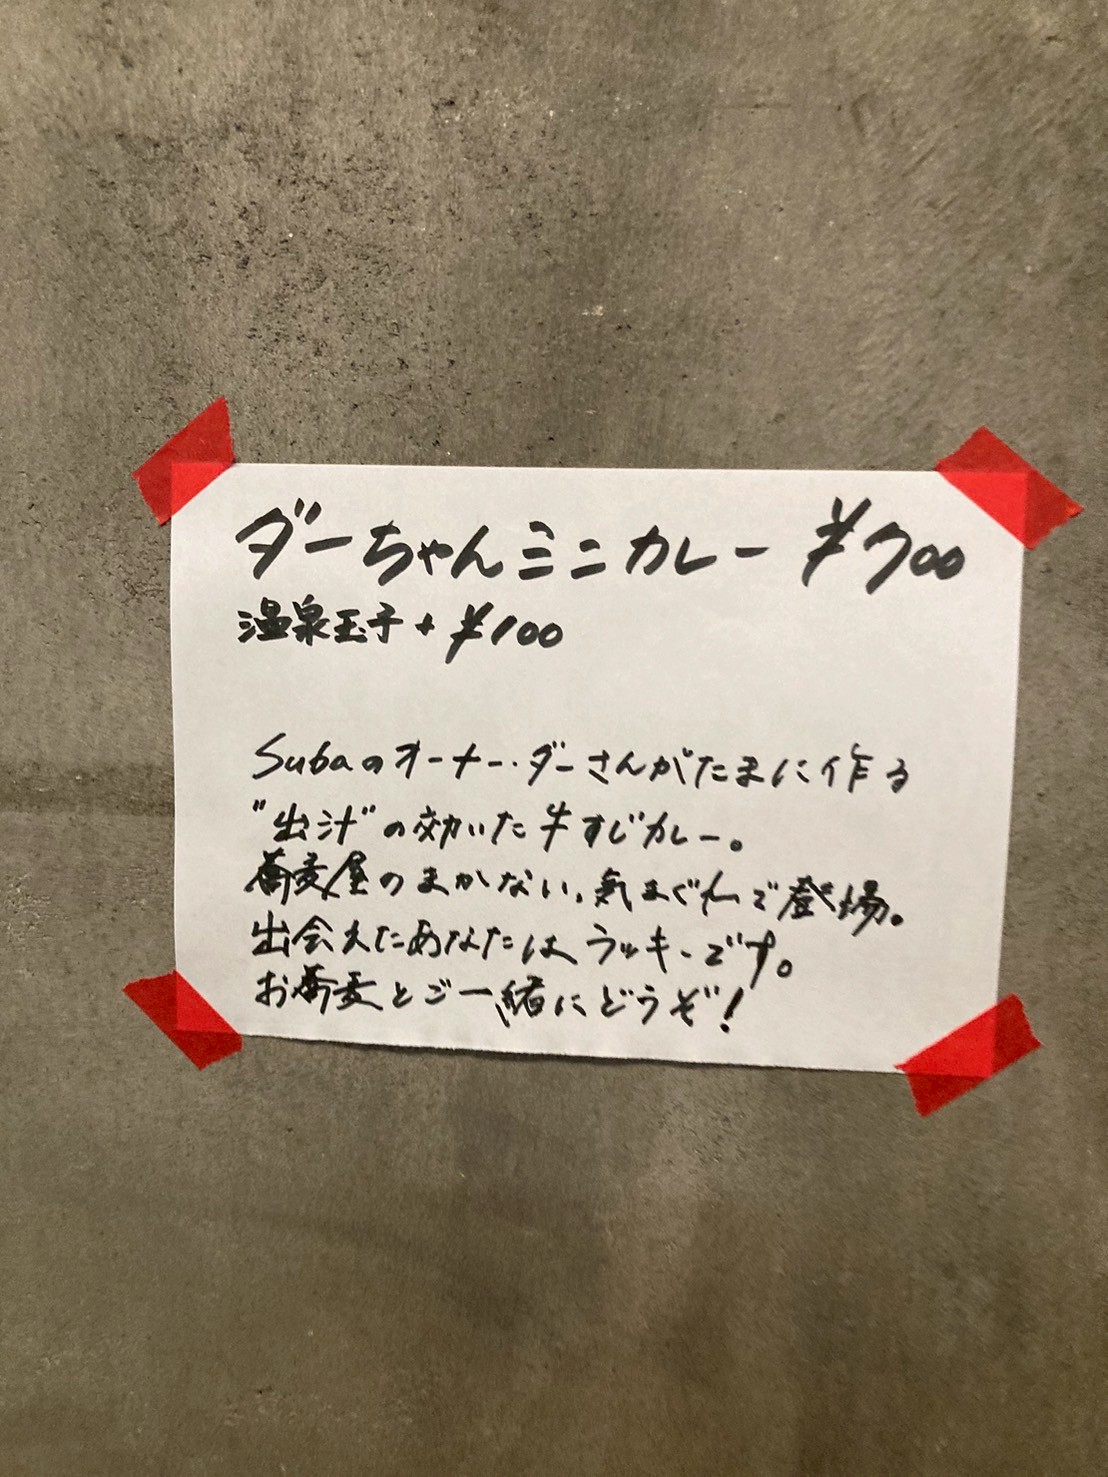 ダーちゃんミニカレー ¥700
温泉玉子 + ¥100
Subaのオーナー・ダーさんがたまに作る
"出汁"の効いた牛すじカレー。
蕎麦屋のまかない、気まぐれで登場。
出会えたあなたはラッキーです。
お蕎麦とご一緒にどうぞ!